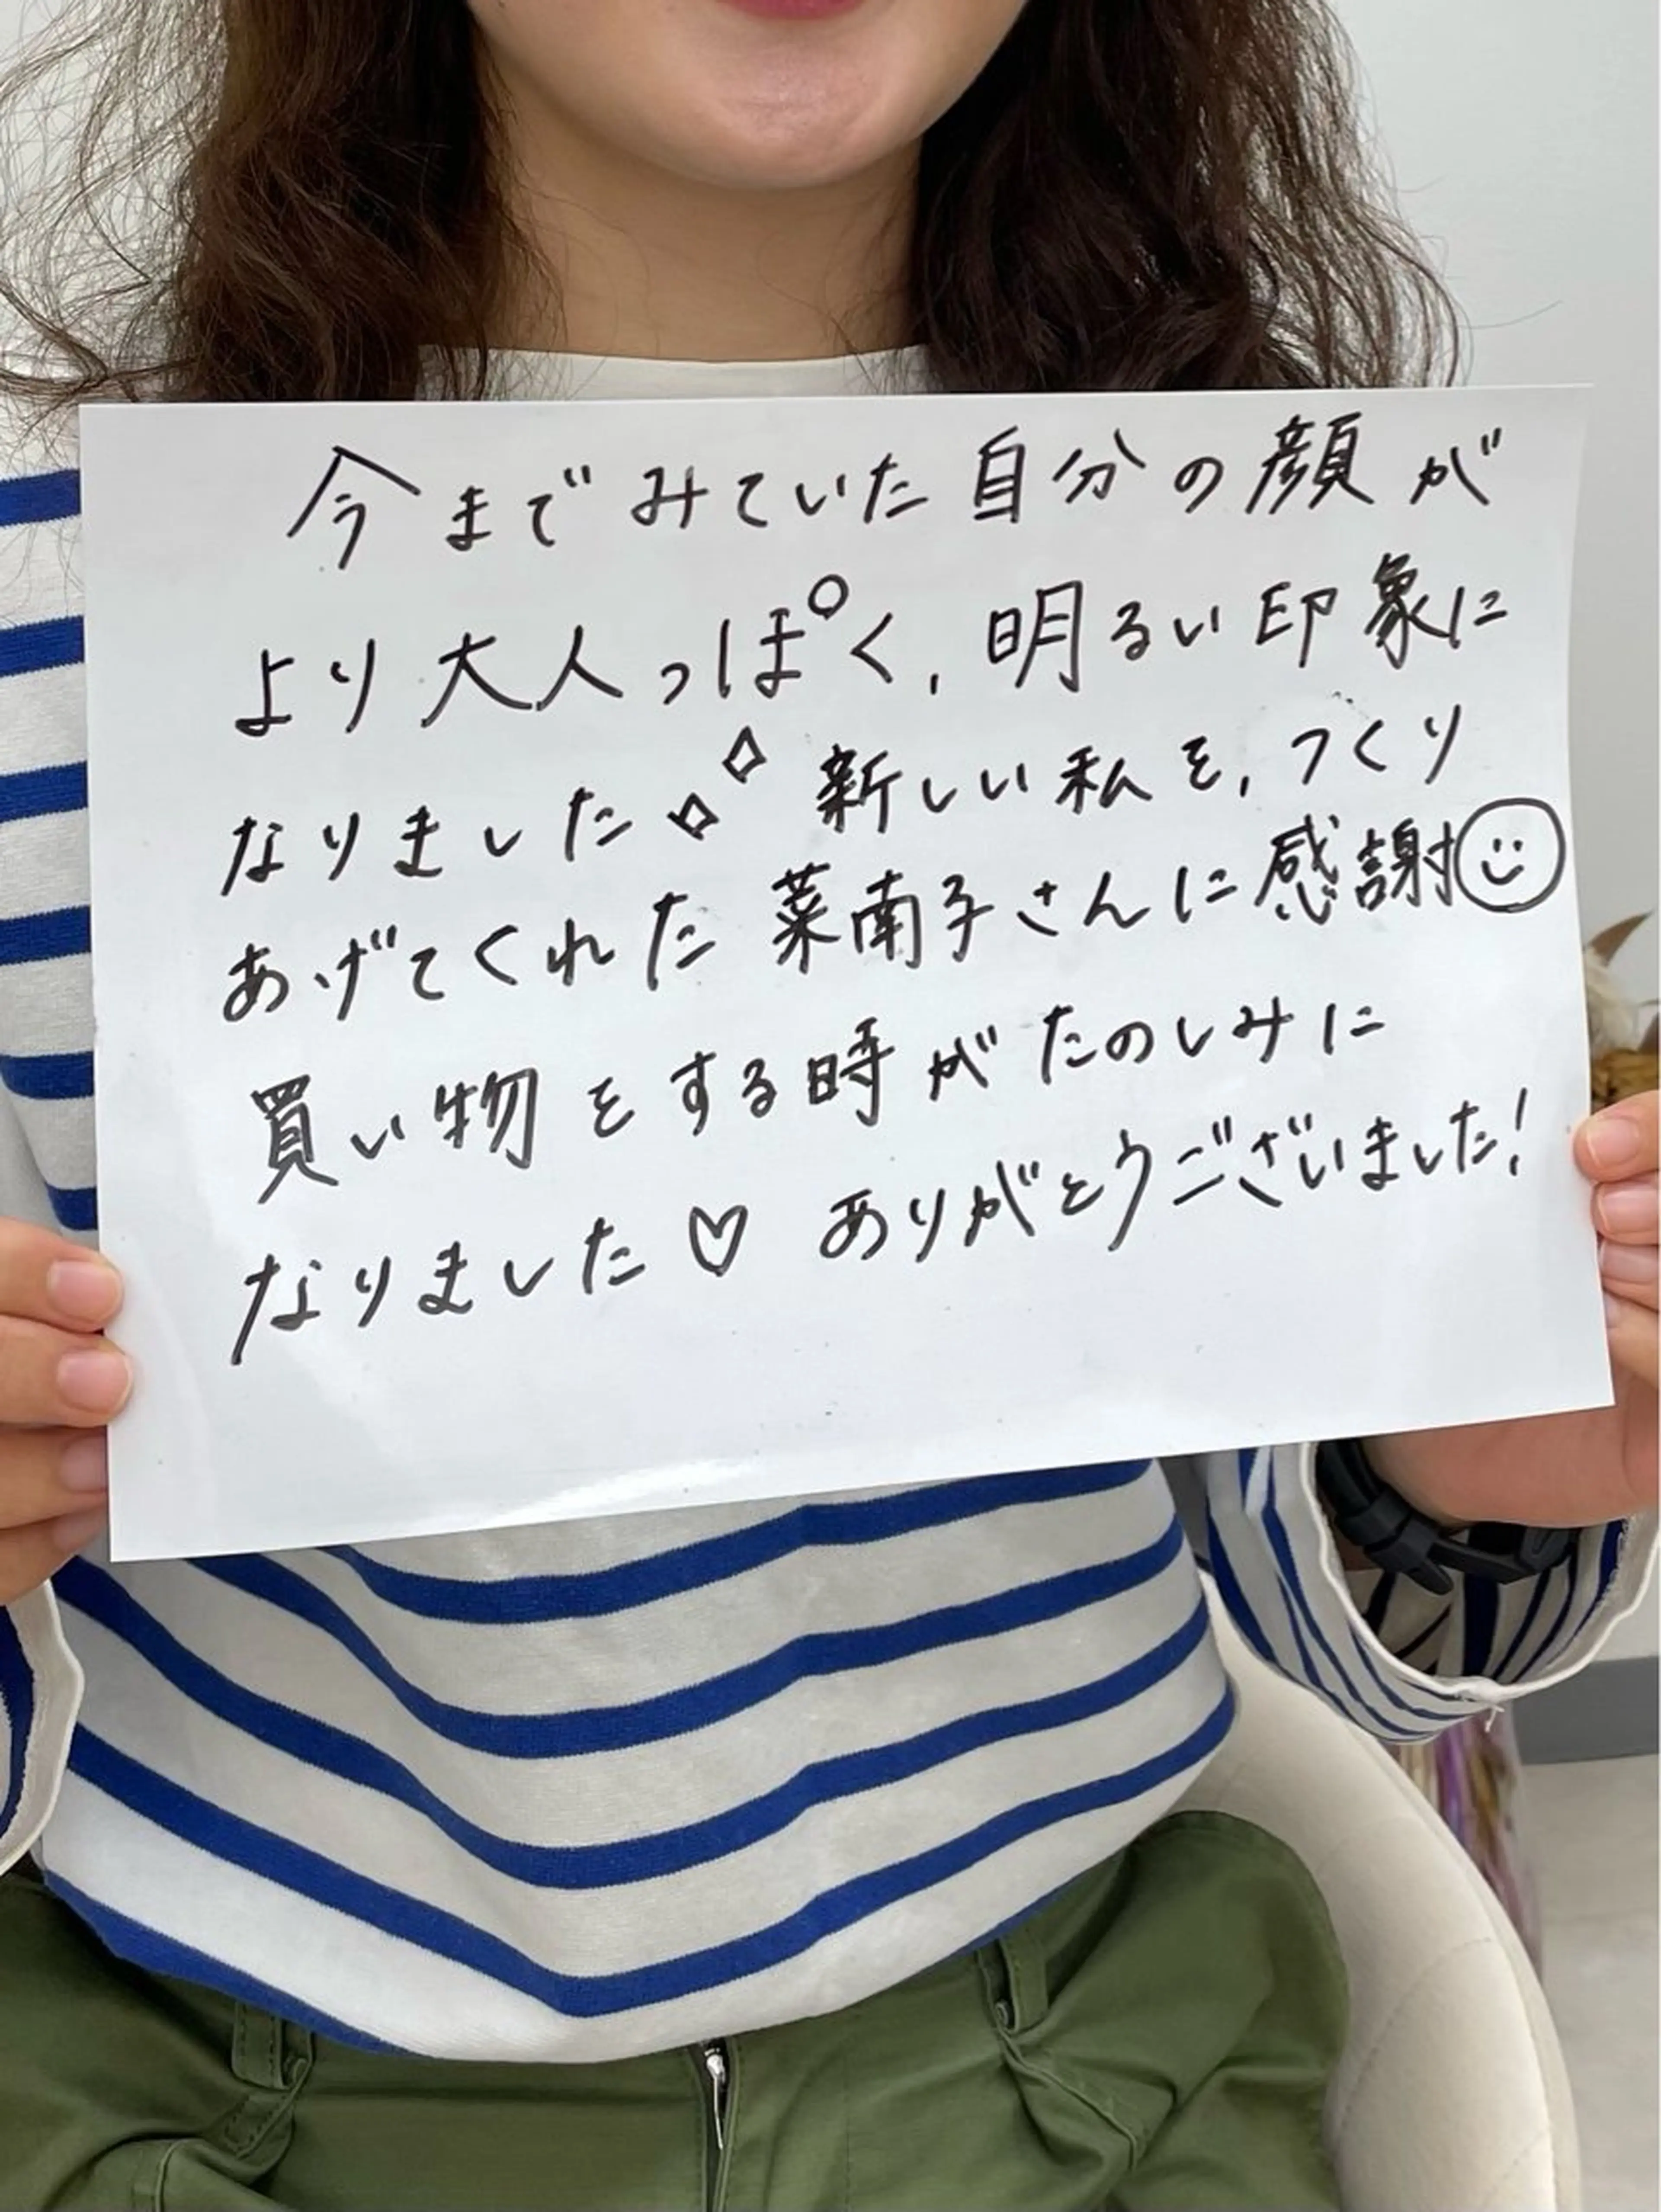 今までみていた自分の顔が
より大人っぽく、明るい印象に
なりました 新しい私を、つくり
あげてくれた菜南子さんに感謝
買い物をする時がたのしみに
なりました♡ ありがとうございました!